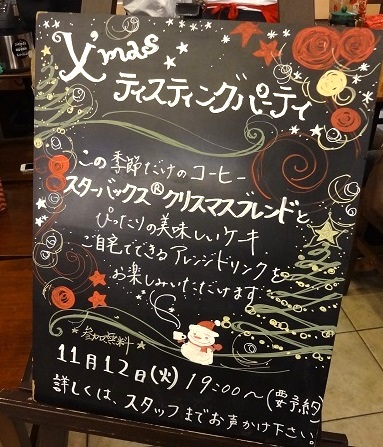 X'mas
テイスティングパーティ
この季節だけのコーヒー
スターバックス®クリスマスブレンドと
ぴったりの美味しいケーキ
ご自宅でできるアレンジドリンクを
お楽しみいただけます
*参加無料*
11月12日(火) 19:00〜(要予約)
詳しくは、スタッフまでお声かけ下さい。